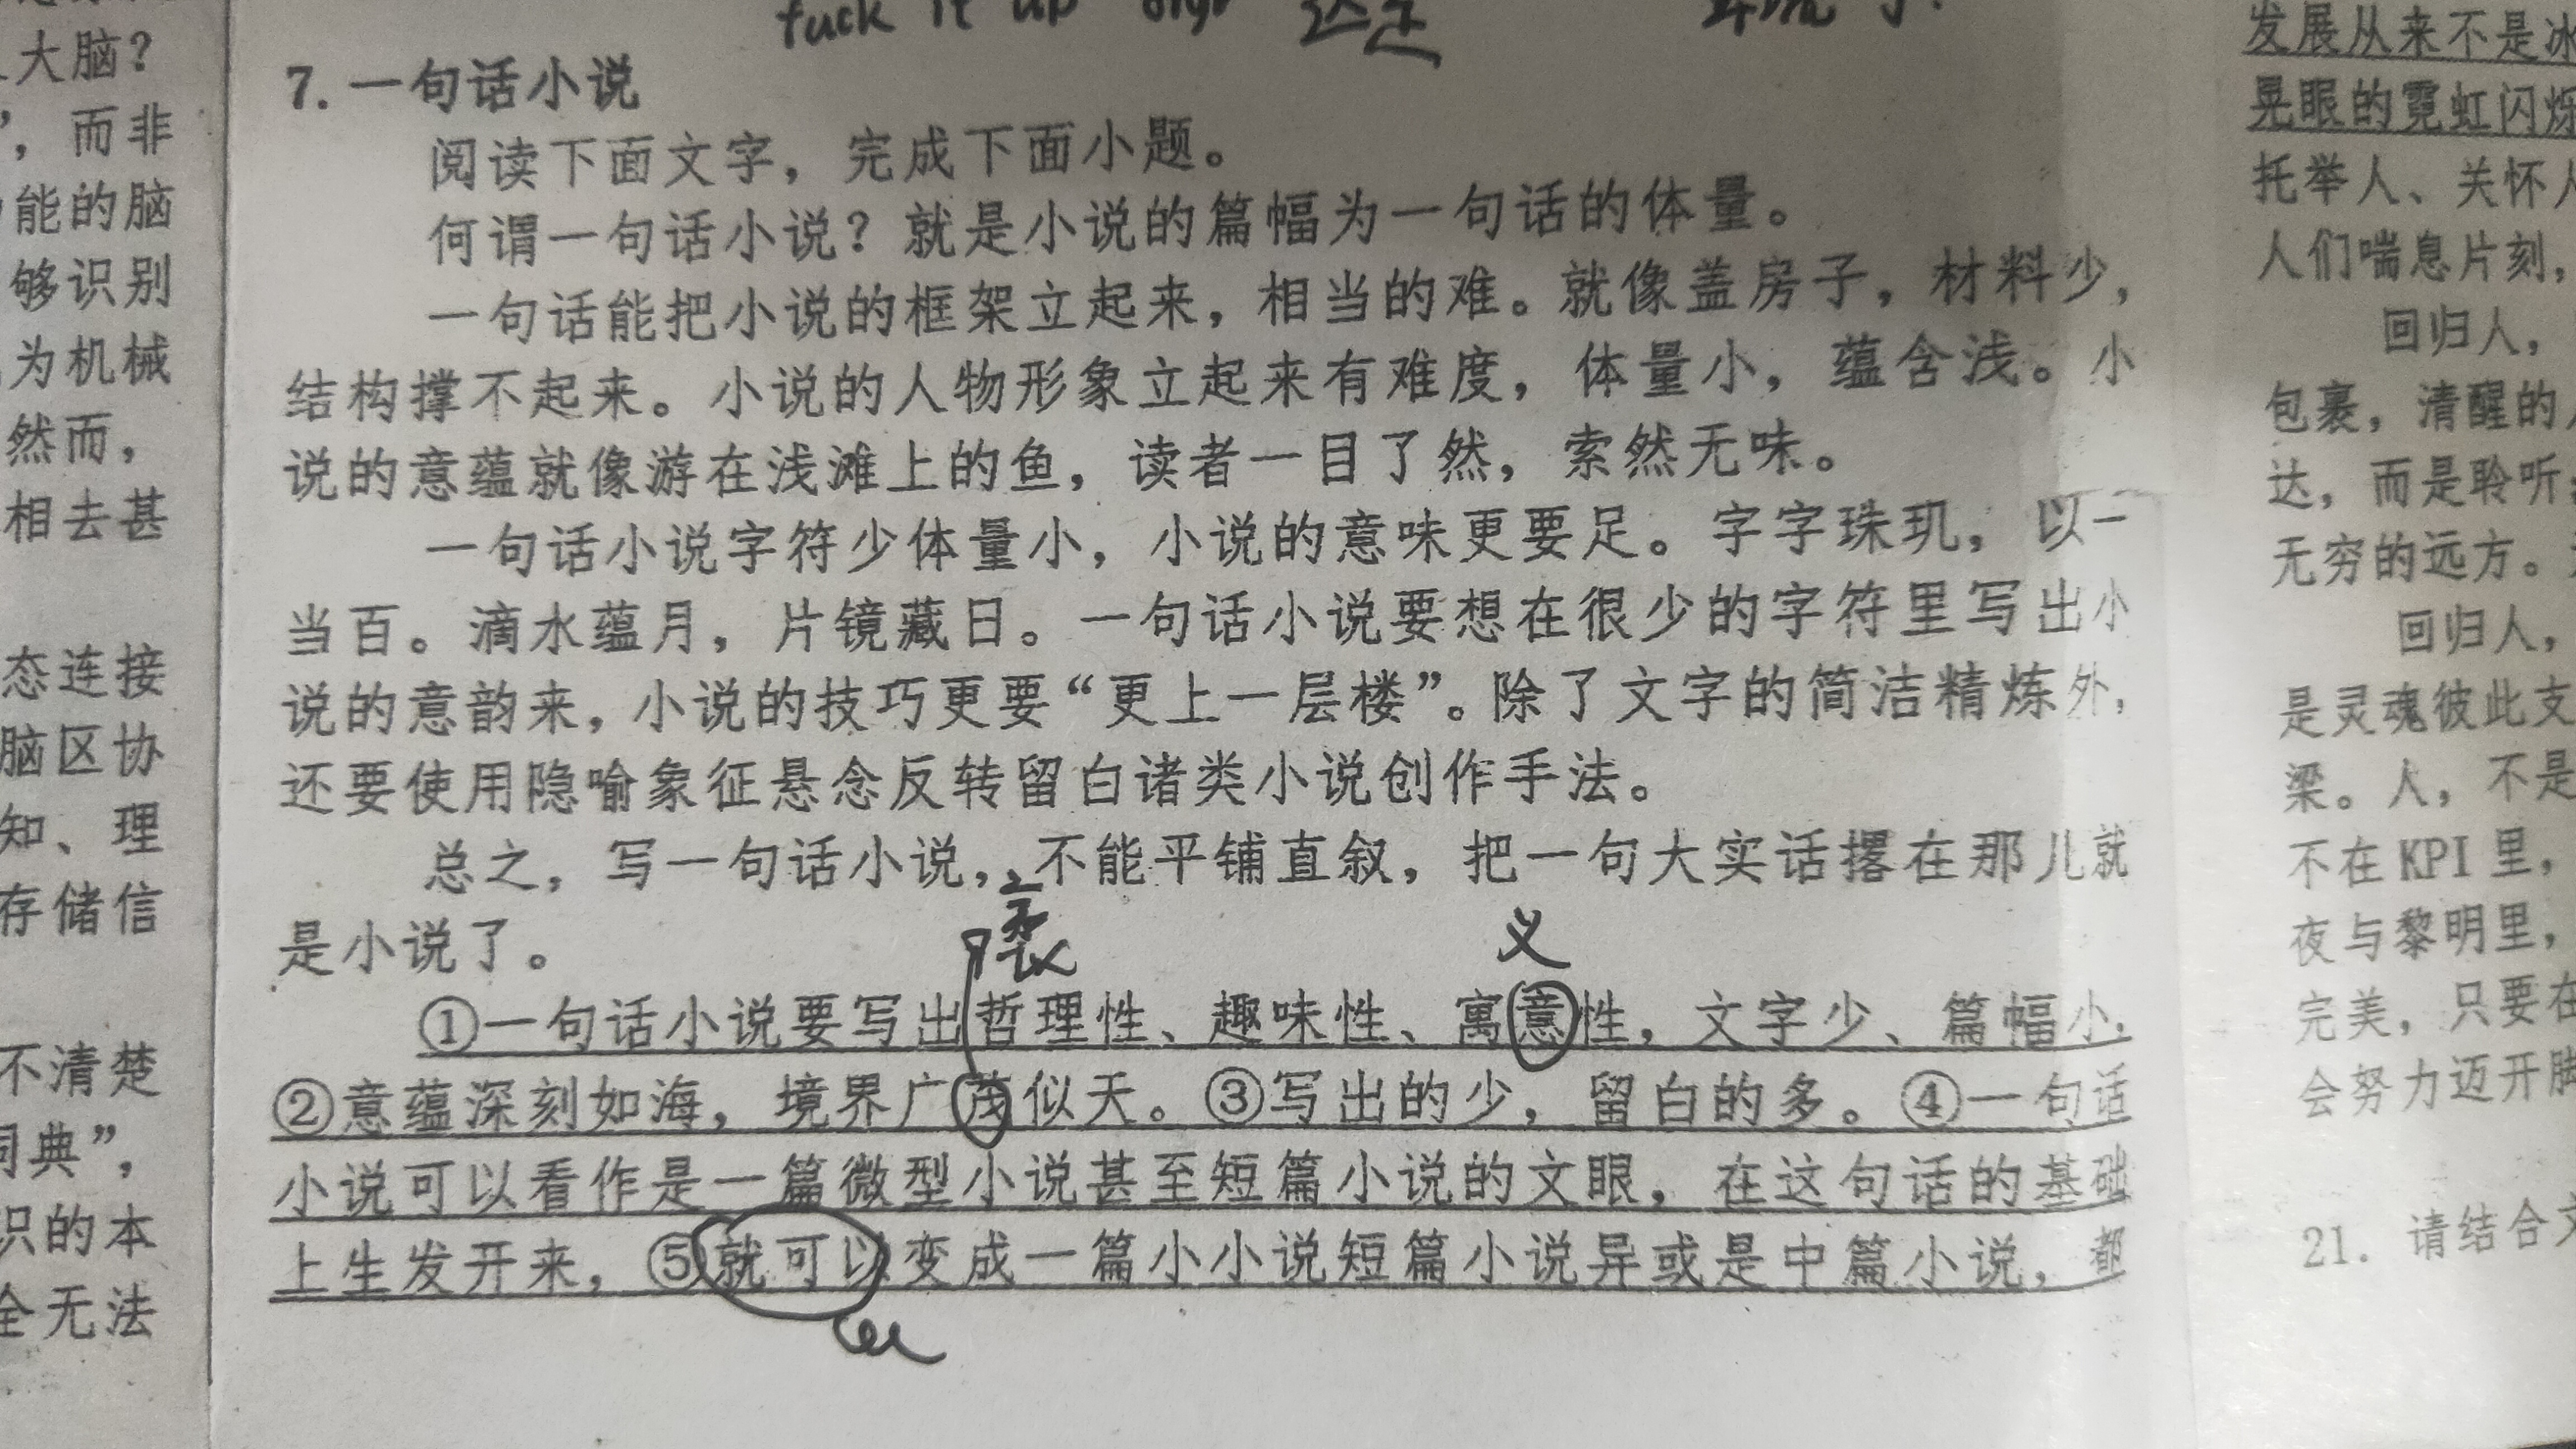 大脑？
，而非
能的脑
够识别
为机械
然而，
相去甚
态连接
脑区协
知、理
存储信
不清楚
词典”，
识的本
全无法
fuck it up
7. 一句话小说
阅读下面文字，完成下面小题。
何谓一句话小说？就是小说的篇幅为一句话的体量。
一句话能把小说的框架立起来，相当的难。就像盖房子，材料少，
结构撑不起来。小说的人物形象立起来有难度，体量小，蕴含浅。小
说的意蕴就像游在浅滩上的鱼，读者一目了然，索然无味。
一句话小说字符少体量小，小说的意味更要足。字字珠玑，以一
当百。滴水蕴月，片镜藏日。一句话小说要想在很少的字符里写出小
说的意韵来，小说的技巧更要“更上一层楼”。除了文字的简洁精炼外，
还要使用隐喻象征悬念反转留白诸类小说创作手法。
总之，写一句话小说，不能平铺直叙，把一句大实话撂在那儿就
是小说了。
袤
义
①一句话小说要写出哲理性、趣味性、寓意性，文字少、篇幅小，
②意蕴深刻如海，境界广茂似天。③写出的少，留白的多。④一句话
小说可以看作是一篇微型小说甚至短篇小说的文眼，在这句话的基础
上生发开来，⑤就可以变成一篇小小说短篇小说异或是中篇小说，都
发展从来不是冰
晃眼的霓虹闪烁
托举人、关怀人
人们喘息片刻，
回归人，
包裹，清醒的
达，而是聆听
无穷的远方。
回归人，
是灵魂彼此支
梁。人，不是
不在 KPI 里，
夜与黎明里，
完美，只要在
会努力迈开脚
21. 请结合文